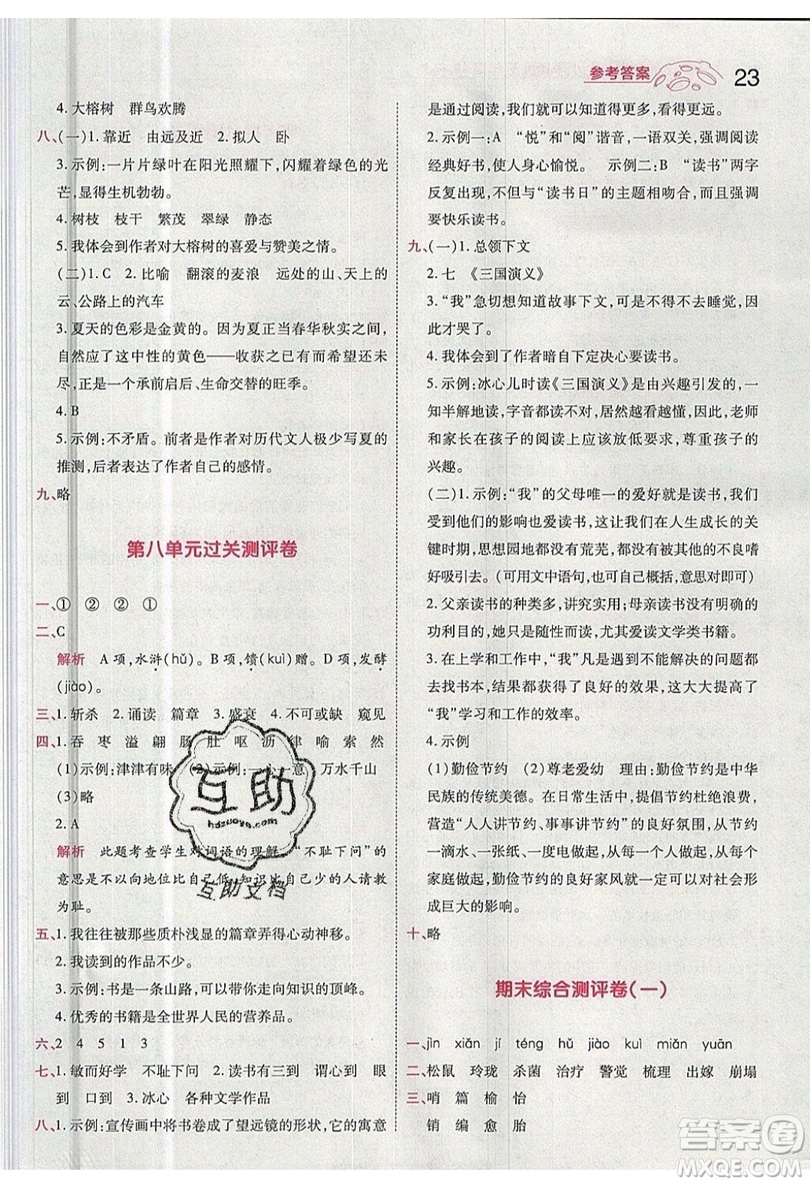 参考答案 23
4. 大榕树 群鸟欢腾
八、(一)1. 靠近 由远及近 2. 拟人 卧
3. 示例:一片片绿叶在阳光照耀下,闪耀着绿色的光
芒,显得生机勃勃。
4. 树枝 枝干 繁茂 翠绿 静态
5. 我体会到作者对大榕树的喜爱与赞美之情。
(二)1. C 2. 比喻 翻滚的麦浪 远处的山、天上的
云、公路上的汽车
3. 夏天的色彩是金黄的。 因为正当春华秋实之间,
自然应是这中性的黄色——收获之已有而希望还未
尽,正是一个承前启后、生命交替的旺季。
4. B
5. 示例:不矛盾。前者是作者对历代文人极少写夏
的推测,后者表达了作者自己的感情。
九、略
第八单元过关测评卷
一、① ② ② ①
二、C
解析 A 项,水浒(hǔ)。B 项,馈(kuì)赠。D 项,发酵
(jiào)。
三、1. 斩杀 2. 诵读 篇章 3. 盛衰 4. 不可或缺 窥见
四、1. 吞 枣 溢 翩 肠 肚 呕 沥 津 喻 索 然
(1)示例:津津有味 (2)示例:一心一意 万水千山
(3)略
2. A
解析 此题考查学生对词语的理解。“不耻下问”的
意思是不以向地位比自己低、知识比自己少的人请教
为耻。
五、1. 我往往被那些质朴浅显的篇章弄得心动神移。
2. 我读过的作品不少。
3. 示例:书是一条山路,可以带你走向知识的顶峰。
4. 优秀的书籍是全世界人民的营养品。
六、2 4 5 1 3
七、1. 敏而好学 不耻下问 2. 读书有三到 心到 眼
到 口到 3. 冰心 各种文学作品
八、1. 示例:宣传画中将书卷成了望远镜的形状,它的寓意
是通过阅读,我们可以看得更多,看得更远。
2. 示例一:A “悦”和“阅”谐音,一语双关,强调阅读
经典好书,使人身心愉悦。 示例二:B “读书”两字
反复出现,不仅与“读书日”的主题相吻合,而且还要
快乐读书。
九、(一)1. 总领下文
2. 七 《三国演义》
3. “我”急切想知道故事下文,却不得不去睡觉,因此
才哭了。
4. 我体会到了作者暗自下定决心要读书。
5. 示例:冰心儿时读《三国演义》是由兴趣引发的,一
知半解地读,字音都读不准,居然越看越懂,因此,老师
和家长在孩子的阅读上应放低要求,尊重孩子的
兴趣。
(二)1. 示例:“我”的父母唯一的爱好就是读书,
“我”也爱好读书,使得在我们这些孩子人生成长的
关键时期,思想园地中没有荒芜,没有被其他的不良嗜
好吸引去。(可用文中语句,也可自己概括,意思对即可)
2. 父亲读书的类型多样,讲究实用;母亲读书没有明确的
功利目的,她读书随性而读,尤其爱读文学类书籍。
3. 在上学和工作中,“我”凡是遇到不能解决的问题都
去找书读,结果都收到了良好的效果,这大大提高了
“我”学习和工作的效率。
4. 示例
(1)勤俭节约 (2)尊老爱幼 理由:勤俭节约是中华
民族的传统美德。在日常生活中,提倡节约,杜绝浪费,
营造“人人讲节约、事事讲节约”的良好氛围,从节约
一滴水、一张纸、一度电做起,从我做起,从身边做起,
做到勤俭节约,良好家风就可以形成,也会对社会形成
巨大的影响。
十、略
期末综合测评卷(一)
一、jìn xiǎn jí téng hǔ jiào kuì miǎn yuān
二、松鼠 玲珑 杀菌 治疗 警觉 梳理 出嫁 崩塌
三、哨 篇 榆 怡
销 编 愈 胎
互助
hdzuoye.com
互助文档
答案圈
MXQE.COM